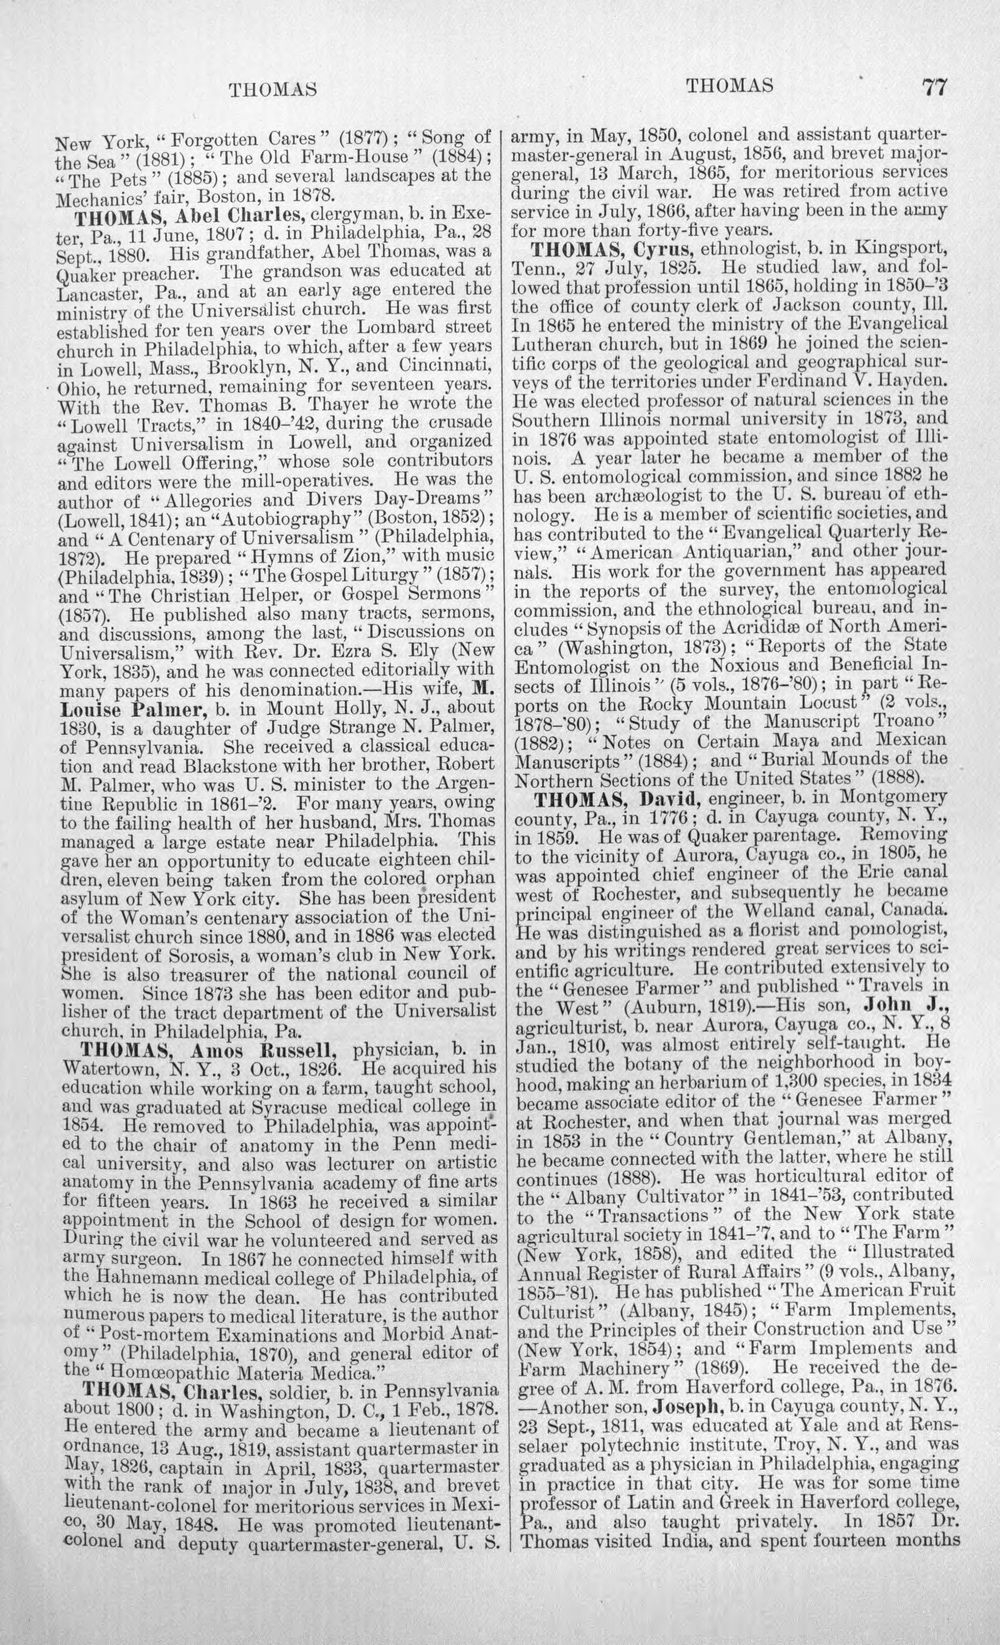 THOMAS
THOMAS
77
New York, “Forgotten Cares” (1877); “Song of
the Sea” (1881); “The Old Farm-House” (1884);
“The Pets” (1885); and several landscapes at the
Mechanics’ fair, Boston, in 1878.
THOMAS, Abel Charles, clergyman, b. in Exe-
ter, Pa., 11 June, 1807; d. in Philadelphia, Pa., 28
Sept., 1880. His grandfather, Abel Thomas, was a
Quaker preacher. The grandson was educated at
Lancaster, Pa., and at an early age entered the
ministry of the Universalist church. He was first
established for ten years over the Lombard street
church in Philadelphia, to which, after a few years
in Lowell, Mass., Brooklyn, N. Y., and Cincinnati,
Ohio, he returned, remaining for seventeen years.
With the Rev. Thomas B. Thayer he wrote the
“Lowell Tracts,” in 1840–’42, during the crusade
against Universalism in Lowell, and organized
“The Lowell Offering,” whose sole contributors
and editors were the mill-operatives. He was the
author of “Allegories and Divers Day-Dreams”
(Lowell, 1841); an “Autobiography” (Boston, 1852);
and “A Centenary of Universalism” (Philadelphia,
1872). He prepared “Hymns of Zion,” with music
(Philadelphia, 1839); “The Gospel Liturgy” (1857);
and “The Christian Helper, or Gospel Sermons”
(1857). He published also many tracts, sermons,
and discussions, among the last, “Discussions on
Universalism,” with Rev. Dr. Ezra S. Ely (New
York, 1835), and he was connected editorially with
many papers of his denomination.—His wife, M.
Louise Palmer, b. in Mount Holly, N. J., about
1830, is a daughter of Judge Strange N. Palmer,
of Pennsylvania. She received a classical educa-
tion and read Blackstone with her brother, Robert
M. Palmer, who was U. S. minister to the Argen-
tine Republic in 1861–’2. For many years, owing
to the failing health of her husband, Mrs. Thomas
managed a large estate near Philadelphia. This
gave her an opportunity to educate eighteen chil-
dren, eleven being taken from the colored orphan
asylum of New York city. She has been president
of the Woman’s centenary association of the Uni-
versalist church since 1880, and in 1886 was elected
president of Sorosis, a woman’s club in New York.
She is also treasurer of the national council of
women. Since 1873 she has been editor and pub-
lisher of the tract department of the Universalist
church, in Philadelphia, Pa.
THOMAS, Amos Russell, physician, b. in
Watertown, N. Y., 3 Oct., 1826. He acquired his
education while working on a farm, taught school,
and was graduated at Syracuse medical college in
1854. He removed to Philadelphia, was appoint-
ed to the chair of anatomy in the Penn medi-
cal university, and also was lecturer on artistic
anatomy in the Pennsylvania academy of fine arts
for fifteen years. In 1863 he received a similar
appointment in the School of design for women.
During the civil war he volunteered and served as
army surgeon. In 1867 he connected himself with
the Hahnemann medical college of Philadelphia, of
which he is now the dean. He has contributed
numerous papers to medical literature, is the author
of “Post-mortem Examinations and Morbid Anat-
omy” (Philadelphia, 1870), and general editor of
the “Homœopathic Materia Medica.”
THOMAS, Charles, soldier, b. in Pennsylvania
about 1800; d. in Washington, D. C., 1 Feb., 1878.
He entered the army and became a lieutenant of
ordnance, 13 Aug., 1819, assistant quartermaster in
May, 1826, captain in April, 1833, quartermaster
with the rank of major in July, 1838, and brevet
lieutenant-colonel for meritorious services in Mexi-
co, 30 May, 1848. He was promoted lieutenant-
colonel and deputy quartermaster-general, U. S.
army, in May, 1850, colonel and assistant quarter-
master-general in August, 1856, and brevet major-
general, 13 March, 1865, for meritorious services
during the civil war. He was retired from active
service in July, 1866, after having been in the army
for more than forty-five years.
THOMAS, Cyrus, ethnologist, b. in Kingsport,
Tenn., 27 July, 1825. He studied law, and fol-
lowed that profession until 1865, holding in 1850–’3
the office of county clerk of Jackson county, Ill.
In 1865 he entered the ministry of the Evangelical
Lutheran church, but in 1869 he joined the scien-
tific corps of the geological and geographical sur-
veys of the territories under Ferdinand V. Hayden.
He was elected professor of natural sciences in the
Southern Illinois normal university in 1873, and
in 1876 was appointed state entomologist of Illi-
nois. A year later he became a member of the
U. S. entomological commission, and since 1882 he
has been archæologist to the U. S. bureau of eth-
nology. He is a member of scientific societies, and
has contributed to the “Evangelical Quarterly Re-
view,” “American Antiquarian,” and other jour-
nals. His work for the government has appeared
in the reports of the survey, the entomological
commission, and the ethnological bureau, and in-
cludes “Synopsis of the Acrididæ of North Ameri-
ca” (Washington, 1873); “Reports of the State
Entomologist on the Noxious and Beneficial In-
sects of Illinois” (5 vols., 1876–’80); in part “Re-
ports on the Rocky Mountain Locust” (2 vols.,
1878–’80); “Study of the Manuscript Troano”
(1882); “Notes on Certain Maya and Mexican
Manuscripts” (1884); and “Burial Mounds of the
Northern Sections of the United States” (1888).
THOMAS, David, engineer, b. in Montgomery
county, Pa., in 1776; d. in Cayuga county, N. Y.,
in 1859. He was of Quaker parentage. Removing
to the vicinity of Aurora, Cayuga co., in 1805, he
was appointed chief engineer of the Erie canal
west of Rochester, and subsequently he became
principal engineer of the Welland canal, Canada.
He was distinguished as a florist and pomologist,
and by his writings rendered great services to sci-
entific agriculture. He contributed extensively to
the “Genesee Farmer” and published “Travels in
the West” (Auburn, 1819).—His son, John J.,
agriculturist, b. near Aurora, Cayuga co., N. Y., 8
Jan., 1810, was almost entirely self-taught. He
studied the botany of the neighborhood in boy-
hood, making an herbarium of 1,300 species, in 1834
became associate editor of the “Genesee Farmer”
at Rochester, and when that journal was merged
in 1853 in the “Country Gentleman,” at Albany,
he became connected with the latter, where he still
continues (1888). He was horticultural editor of
the “Albany Cultivator” in 1841–’53, contributed
to the “Transactions” of the New York state
agricultural society in 1841–’7, and to “The Farm”
(New York, 1858), and edited the “Illustrated
Annual Register of Rural Affairs” (9 vols., Albany,
1855–’81). He has published “The American Fruit
Culturist” (Albany, 1845); “Farm Implements,
and the Principles of their Construction and Use”
(New York, 1854); and “Farm Implements and
Farm Machinery” (1869). He received the de-
gree of A. M. from Haverford college, Pa., in 1876.
—Another son, Joseph, b. in Cayuga county, N. Y.,
23 Sept., 1811, was educated at Yale and at Rens-
selaer polytechnic institute, Troy, N. Y., and was
graduated as a physician in Philadelphia, engaging
in practice in that city. He was for some time
professor of Latin and Greek in Haverford college,
Pa., and also taught privately. In 1857 Dr.
Thomas visited India, and spent fourteen months